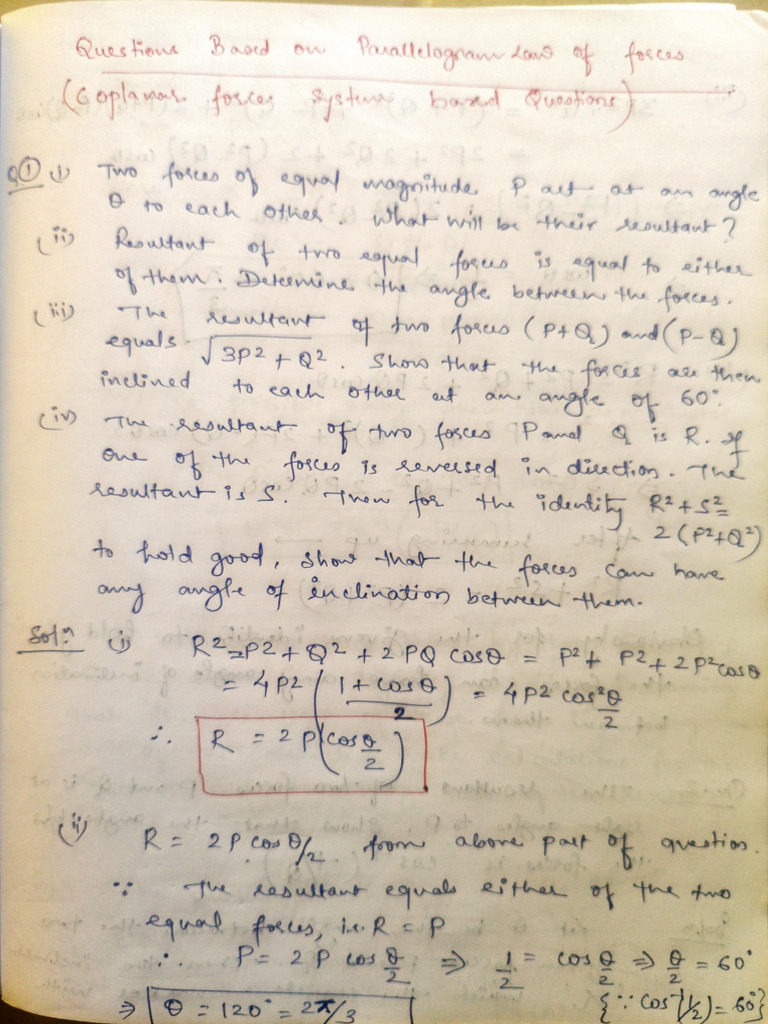 Questions Based on Parallelogram Law of forces
(Coplanar forces system based Questions)
Q① (i) Two forces of equal magnitude P act at an angle
θ to each other. What will be their resultant?
(ii) Resultant of two equal forces is equal to either
of them. Determine the angle between the forces.
(iii) The resultant of two forces (P+Q) and (P-Q)
equals √3P²+Q². Show that the forces are then
inclined to each other at an angle of 60°.
(iv) The resultant of two forces P and Q is R. If
one of the forces is reversed in direction. The
resultant is S. Then for the identity R²+S²=
2(P²+Q²)
to hold good, show that the forces can have
any angle of inclination between them.
Solⁿ (i) R²=P²+Q²+2PQ cosθ = P²+P²+2P²cosθ
= 4P² ((1+cosθ)/2) = 4P² cos²θ/2
∴ R = 2P(cosθ/2)
(ii) R = 2P cosθ/2 from above part of question.
∵ The resultant equals either of the two
equal forces, i.e. R = P
∴ P = 2P cosθ/2 ⇒ 1/2 = cosθ/2 ⇒ θ/2 = 60°
⇒ θ = 120° = 2π/3 {∵ cos⁻¹(1/2) = 60°}